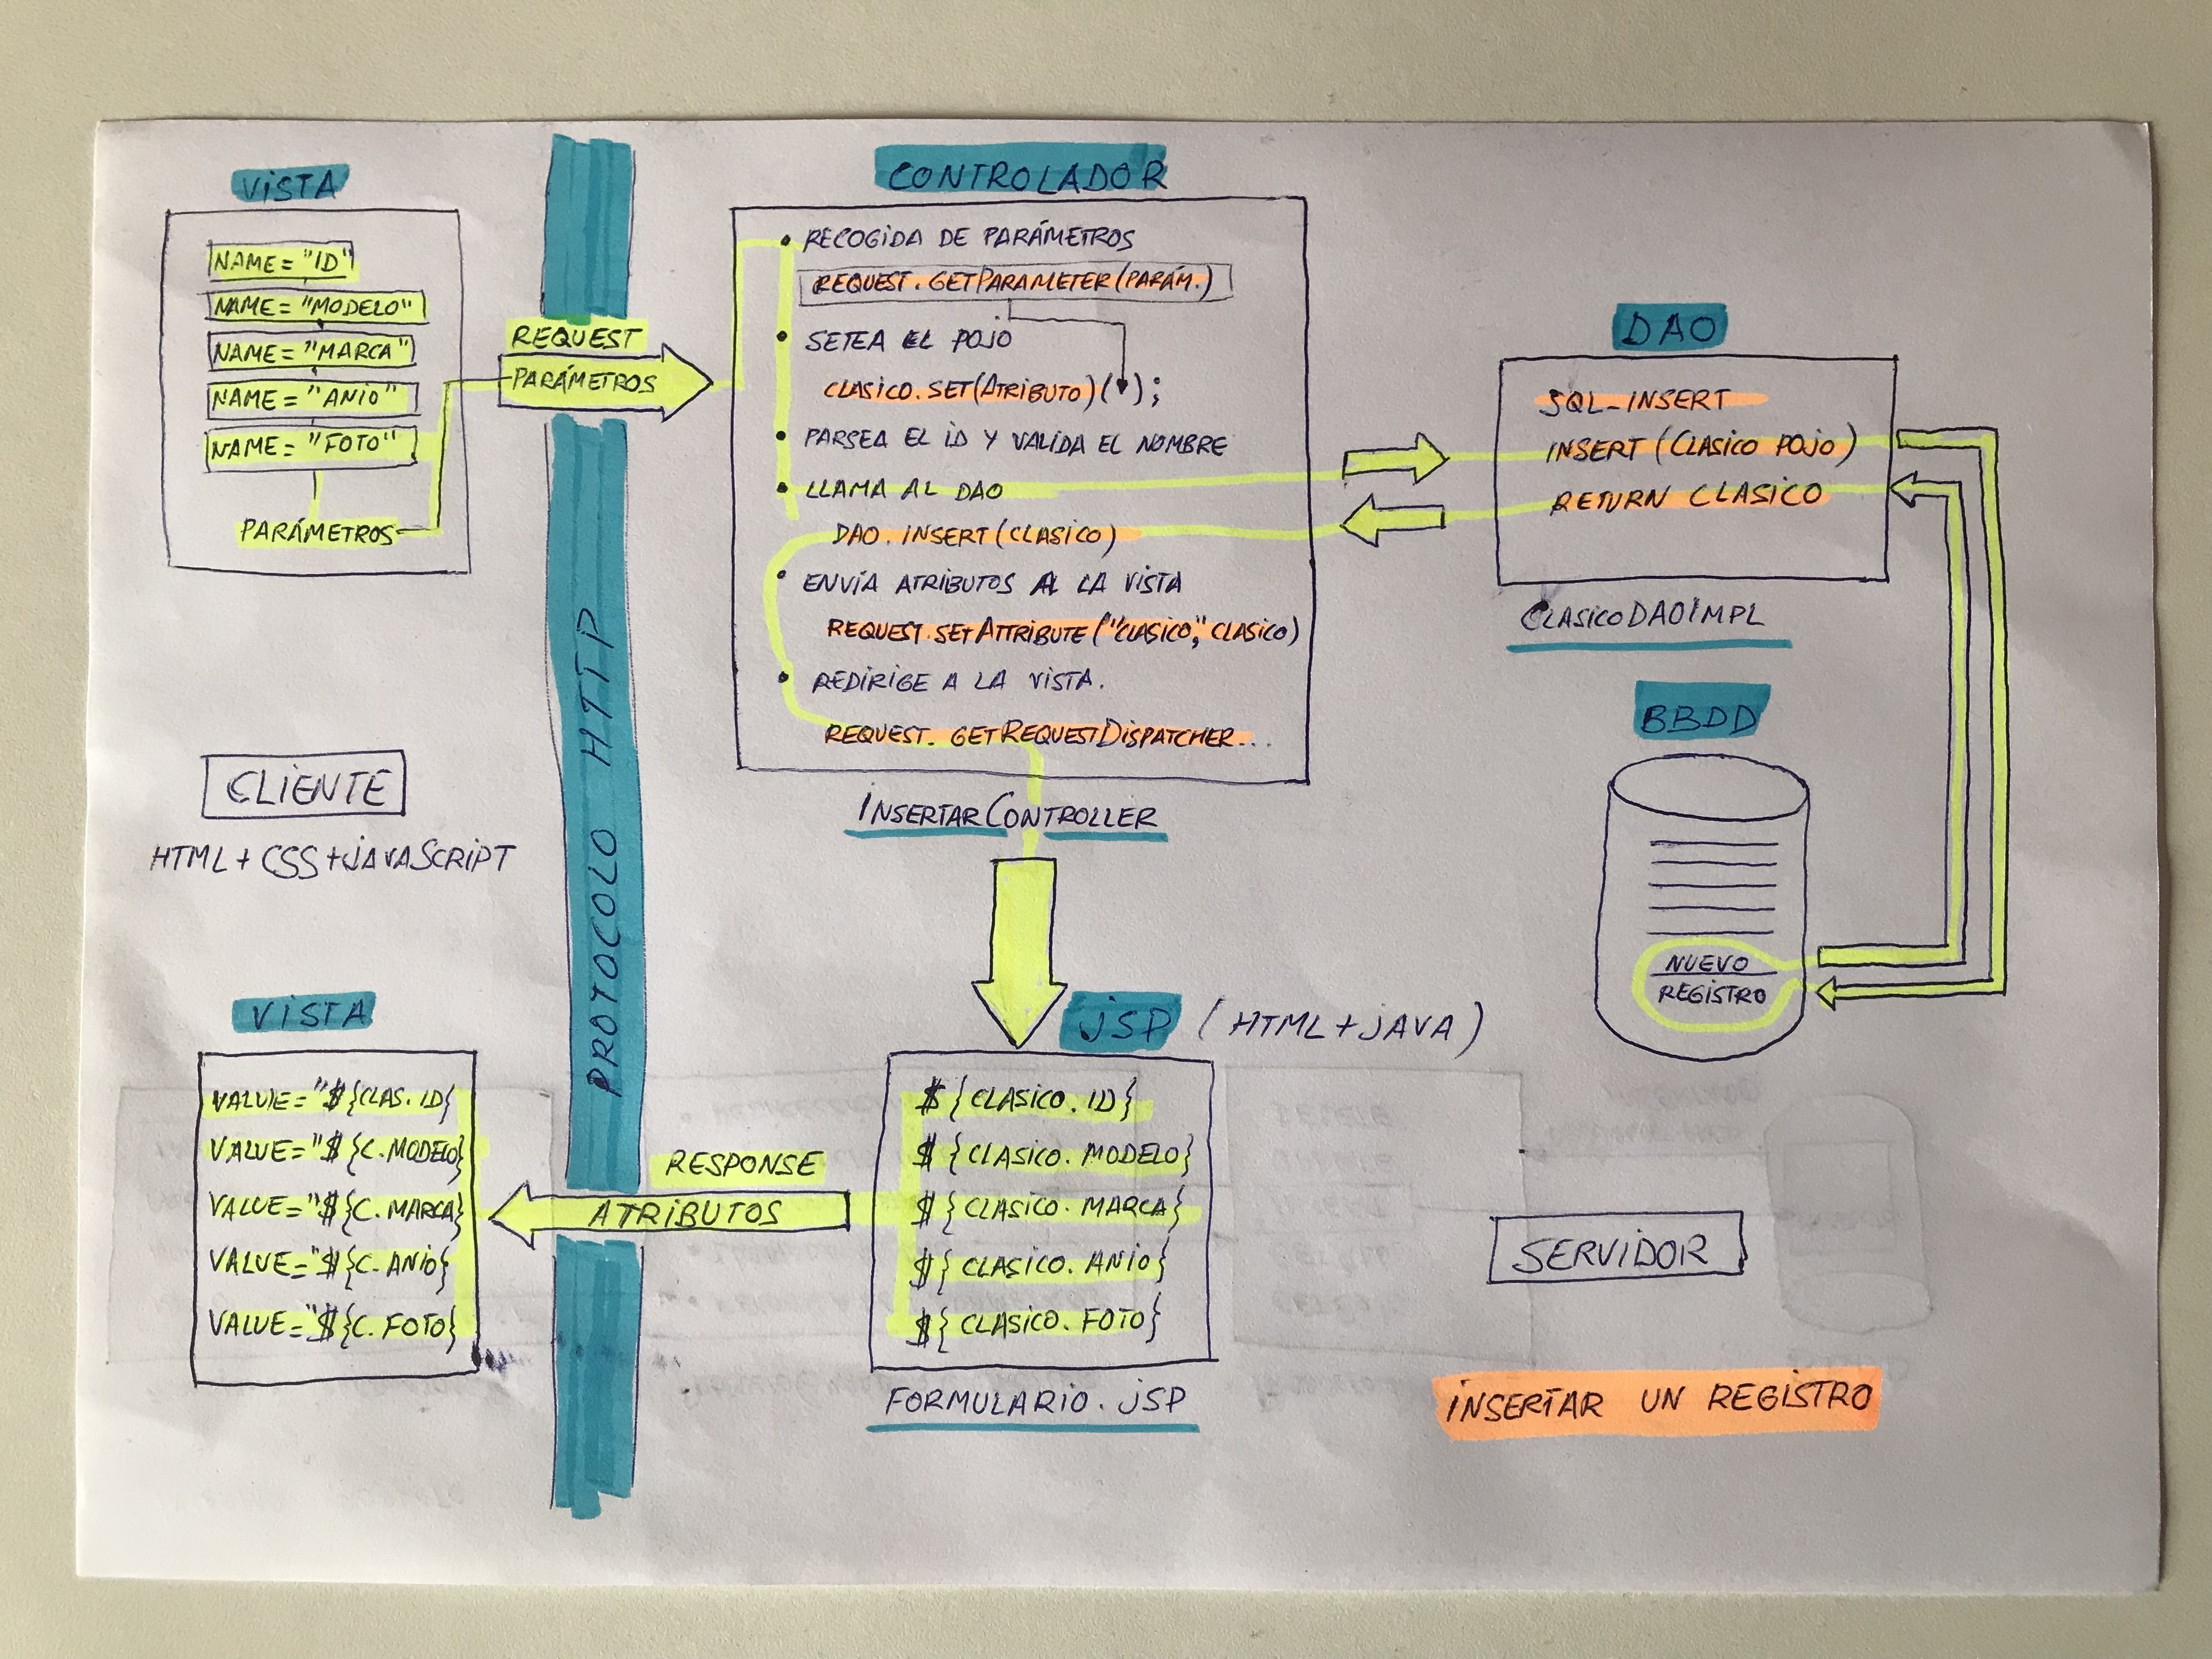 VISTA
NAME="ID"
NAME="MODELO"
NAME="MARCA"
NAME="ANIO"
NAME="FOTO"
PARÁMETROS
REQUEST
PARÁMETROS
PROTOCOLO HTTP
CONTROLADOR
• RECOGIDA DE PARÁMETROS
REQUEST.GETPARAMETER(PARÁM.)
• SETEA EL POJO
CLASICO.SET(ATRIBUTO)( );
• PARSEA EL ID Y VALIDA EL NOMBRE
• LLAMA AL DAO
DAO.INSERT(CLASICO)
• ENVÍA ATRIBUTOS AL LA VISTA
REQUEST.SETATTRIBUTE("CLASICO", CLASICO)
• REDIRIGE A LA VISTA.
REQUEST.GETREQUESTDISPATCHER...
INSERTARCONTROLLER
DAO
SQL_INSERT
INSERT(CLASICO POJO)
RETURN CLASICO
CLASICODAOIMPL
BBDD
NUEVO
REGISTRO
CLIENTE
HTML+CSS+JAVASCRIPT
VISTA
VALUE="${CLAS.ID}
VALUE="${C.MODELO}
VALUE="${C.MARCA}
VALUE="${C.ANIO}
VALUE="${C.FOTO}
RESPONSE
ATRIBUTOS
JSP (HTML+JAVA)
${CLASICO.ID}
${CLASICO.MODELO}
${CLASICO.MARCA}
${CLASICO.ANIO}
${CLASICO.FOTO}
FORMULARIO.JSP
SERVIDOR
INSERTAR UN REGISTRO